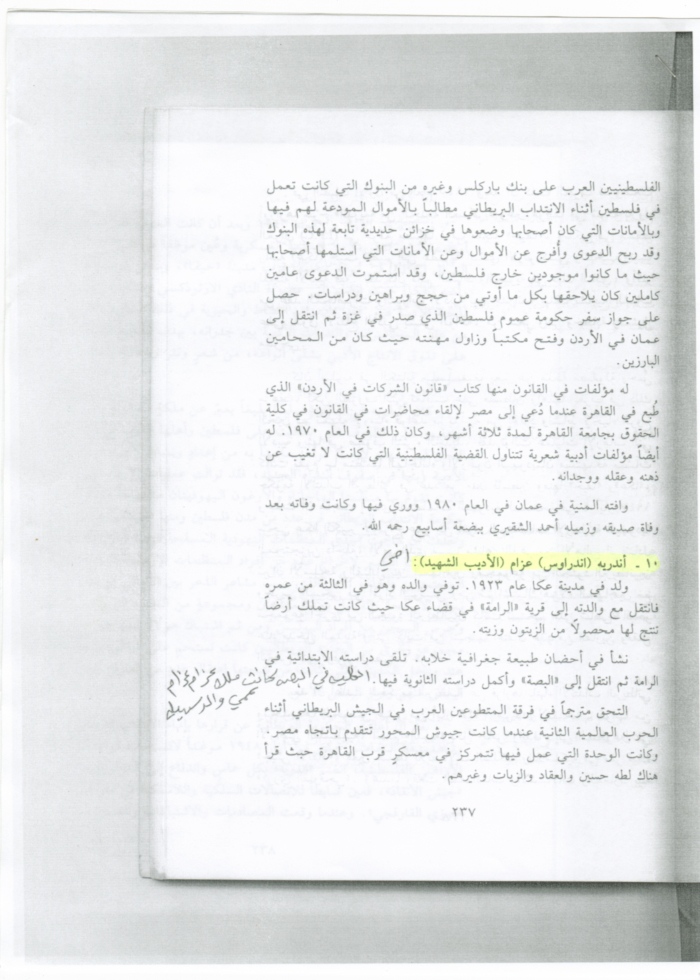 الفلسطينيين العرب على بنك باركلس وغيره من البنوك التي كانت تعمل
في فلسطين أثناء الانتداب البريطاني مطالباً بالأموال المودعة لهم فيها
وبالأمانات التي كان أصحابها وضعوها في خزائن حديدية تابعة لهذه البنوك
وقد ربح الدعوى وأُفرج عن الأموال وعن الأمانات التي استلمها أصحابها
حيث ما كانوا موجودين خارج فلسطين، وقد استمرت الدعوى عامين
كاملين كان يلاحقها بكل ما أوتي من حجج وبراهين ودراسات. حصل
على جواز سفر حكومة عموم فلسطين الذي صدر في غزة ثم انتقل إلى
عمان في الأردن وفتح مكتباً وزاول مهنته حيث كان من المحامين
البارزين.
له مؤلفات في القانون منها كتاب «قانون الشركات في الأردن» الذي
طُبع في القاهرة عندما دُعي إلى مصر لإلقاء محاضرات في القانون في كلية
الحقوق بجامعة القاهرة لمدة ثلاثة أشهر، وكان ذلك في العام ١٩٧٠. له
أيضاً مؤلفات أدبية شعرية تتناول القضية الفلسطينية التي كانت لا تغيب عن
ذهنه وعقله ووجدانه.
وافته المنية في عمان في العام ١٩٨٠ ووري فيها وكانت وفاته بعد
وفاة صديقه وزميله أحمد الشقيري ببضعة أسابيع رحمه الله.
١٠ - أندريه (اندراوس) عزام (الأديب الشهيد): اخي
ولد في مدينة عكا عام ١٩٢٣. توفي والده وهو في الثالثة من عمره
فانتقل مع والدته إلى قرية «الرامة» في قضاء عكا حيث كانت تملك أرضاً
ننتج لها محصولاً من الزيتون وزيته.
نشأ في أحضان طبيعة جغرافية خلابه. تلقى دراسته الابتدائية في
الرامة ثم انتقل إلى «البصة» وأكمل دراسته الثانوية فيها. في البصه كانت ملك عزام عزام
عمي والد
التحق مترجماً في فرقة المتطوعين العرب في الجيش البريطاني أثناء
الحرب العالمية الثانية عندما كانت جيوش المحور تتقدم باتجاه مصر.
وكانت الوحدة التي عمل فيها تتمركز في معسكرٍ قرب القاهرة حيث قرأ
هناك لطه حسين والعقاد والزيات وغيرهم.
٢٣٧